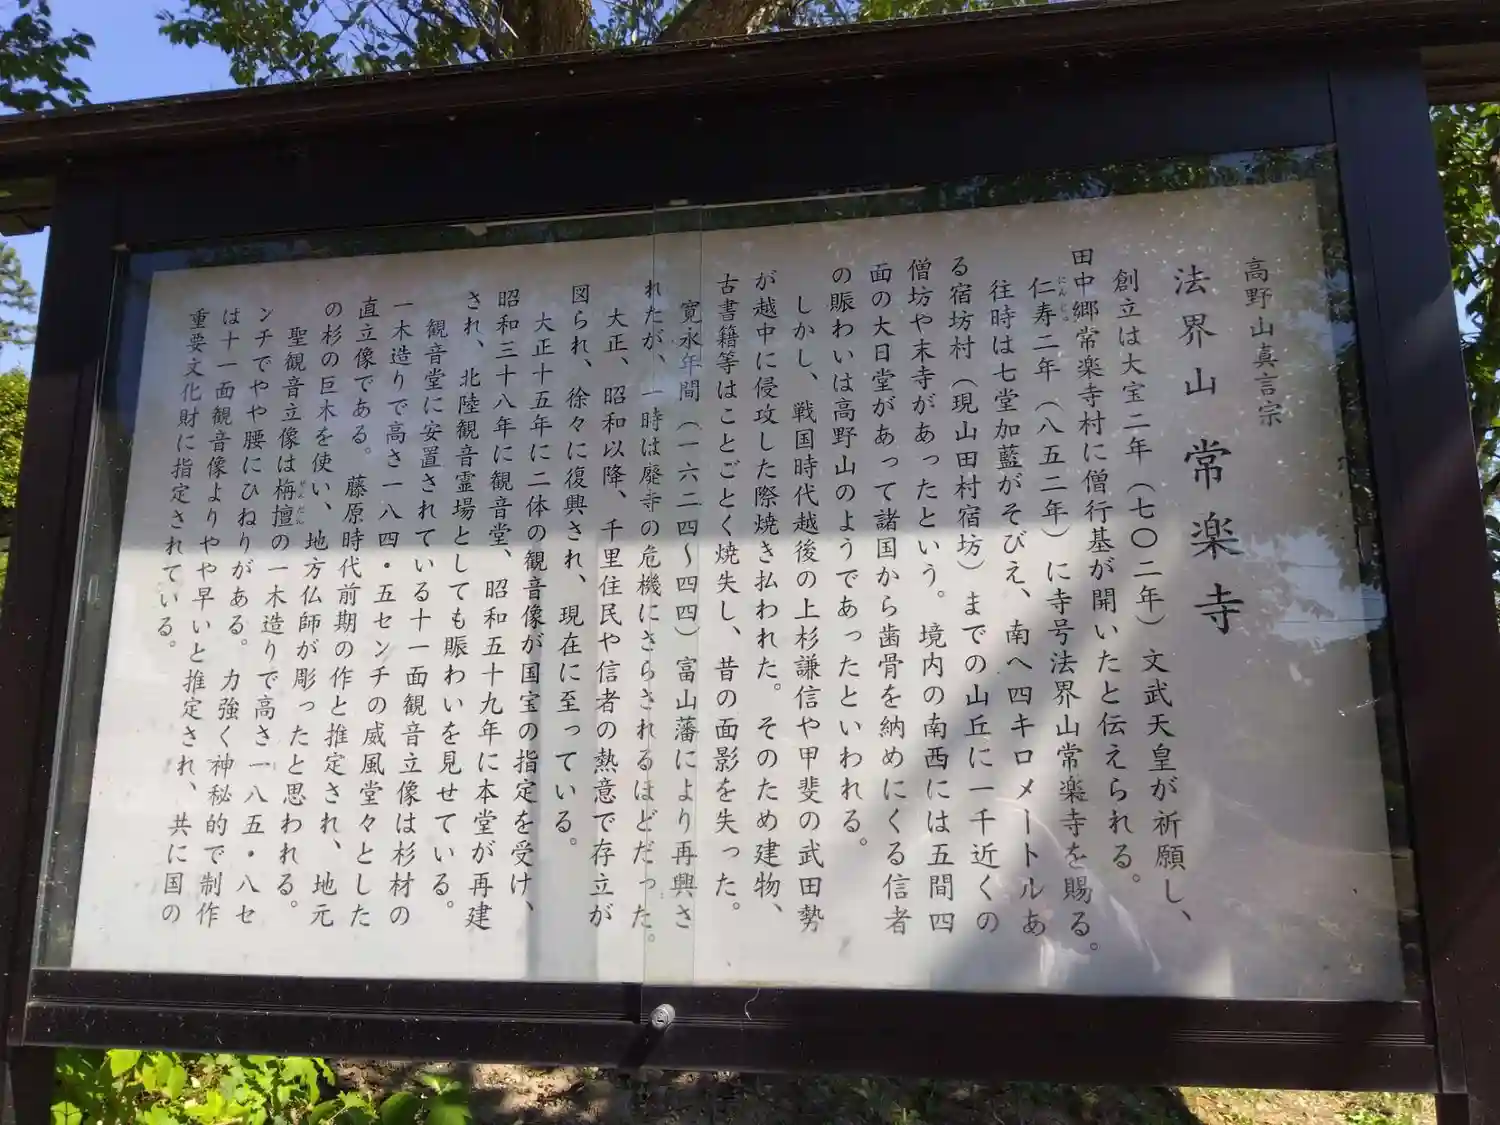 高野山真言宗
法界山 常楽寺
創立は大宝二年（七〇二年）文武天皇が祈願し、
田中郷常楽寺村に僧行基が開いたと伝えられる。
仁寿二年（八五二年）に寺号法界山常楽寺を賜る。
にんじゅ
往時は七堂加藍がそびえ、南へ四キロメートルあ
る宿坊村（現山田村宿坊）までの山丘に一千近くの
僧坊や末寺があったという。境内の南西には五間四
面の大日堂があって諸国から歯骨を納めにくる信者
の賑わいは高野山のようであったといわれる。
しかし、戦国時代越後の上杉謙信や甲斐の武田勢
が越中に侵攻した際焼き払われた。そのため建物、
古書籍等はことごとく焼失し、昔の面影を失った。
寛永年間（一六二四～四四）富山藩により再興さ
れたが、一時は廃寺の危機にさらされるほどだった。
大正、昭和以降、千里住民や信者の熱意で存立が
図られ、徐々に復興され、現在に至っている。
大正十五年に二体の観音像が国宝の指定を受け、
昭和三十八年に観音堂、昭和五十九年に本堂が再建
され、北陸観音霊場としても賑わいを見せている。
観音堂に安置されている十一面観音立像は杉材の
一木造りで高さ一八四・五センチの威風堂々とした
直立像である。藤原時代前期の作と推定され、地元
の杉の巨木を使い、地方仏師が彫ったと思われる。
聖観音立像は栴檀の一木造りで高さ一八五・八セ
せんだん
ンチでやや腰にひねりがある。力強く神秘的で制作
は十一面観音像よりやや早いと推定され、共に国の
重要文化財に指定されている。